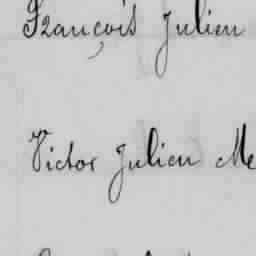 François Julien
Victor Julien Me